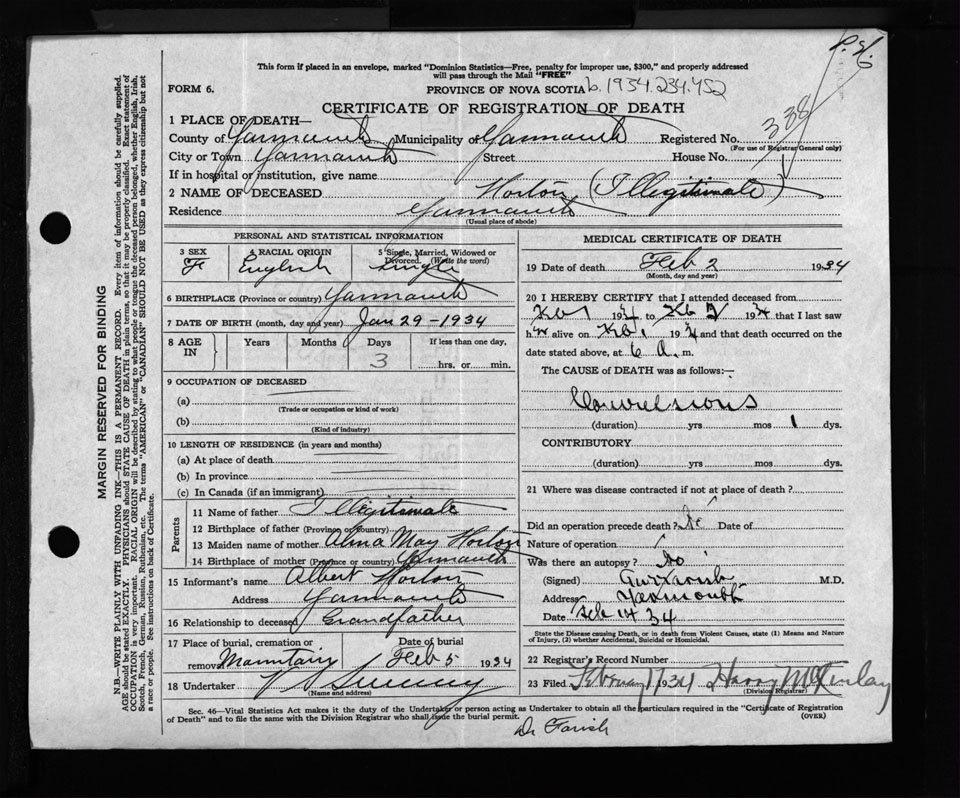 P.H.
6
This form if placed in an envelope, marked "Dominion Statistics—Free, penalty for improper use, $300," and properly addressed
will pass through the Mail "FREE"
FORM 6.
PROVINCE OF NOVA SCOTIA b. 1934.234.452
CERTIFICATE OF REGISTRATION OF DEATH
1 PLACE OF DEATH—
338
County of Yarmouth Municipality of Yarmouth Registered No.
(For use of Registrar General only)
City or Town Yarmouth Street House No.
If in hospital or institution, give name
2 NAME OF DECEASED Horton (Illegitimate)
Residence Yarmouth
(Usual place of abode)
PERSONAL AND STATISTICAL INFORMATION
3 SEX 4 RACIAL ORIGIN 5 Single, Married, Widowed or Divorced. (Write the word)
F English Single
6 BIRTHPLACE (Province or country) Yarmouth
7 DATE OF BIRTH (month, day and year) Jan 29-1934
8 AGE IN Years Months Days If less than one day,
3 hrs. or min.
9 OCCUPATION OF DECEASED
(a)
(Trade or occupation or kind of work)
(b)
(Kind of industry)
10 LENGTH OF RESIDENCE (in years and months)
(a) At place of death
(b) In province
(c) In Canada (if an immigrant)
Parents
11 Name of father Illegitimate
12 Birthplace of father (Province or country)
13 Maiden name of mother Alma May Horton
14 Birthplace of mother (Province or country) Yarmouth
15 Informant's name Albert Horton
Address Yarmouth
16 Relationship to deceased Grandfather
17 Place of burial, cremation or removal Date of burial
Mountain Feb 5 1934
18 Undertaker V S Sweeny
(Name and address)
MEDICAL CERTIFICATE OF DEATH
19 Date of death Feb 2 1934
(Month, day and year)
20 I HEREBY CERTIFY that I attended deceased from
Feb 1 1934 to Feb 2 1934 that I last saw
h alive on Feb 1 1934 and that death occurred on the
date stated above, at 6 a. m.
The CAUSE of DEATH was as follows:—
Convulsions
(duration) yrs mos 1 dys.
CONTRIBUTORY
(duration) yrs mos dys.
21 Where was disease contracted if not at place of death?
Did an operation precede death? No Date of
Nature of operation
Was there an autopsy? No
(Signed) Farish M.D.
Address Yarmouth
Date Feb 14 34
State the Disease causing Death, or in death from Violent Causes, state (1) Means and Nature
of Injury, (2) whether Accidental, Suicidal or Homicidal.
22 Registrar's Record Number
23 Filed February 17 1934 Harry McKinlay
(Division Registrar)
Sec. 46—Vital Statistics Act makes it the duty of the Undertaker or person acting as Undertaker to obtain all the particulars required in the "Certificate of Registration
of Death" and to file the same with the Division Registrar who shall issue the burial permit. (OVER)
Dr Farish
MARGIN RESERVED FOR BINDING
N.B.—WRITE PLAINLY WITH UNFADING INK—THIS IS A PERMANENT RECORD. Every item of information should be carefully supplied.
AGE should be stated EXACTLY. PHYSICIANS should STATE CAUSE OF DEATH in plain terms, so that it may be properly classified. Exact statement of
OCCUPATION is very important. RACIAL ORIGIN will be described by stating to what people or tongue the deceased person belonged, whether English, Irish,
Scotch, French, German, Russian, Ruthenian, etc. The terms "AMERICAN" or "CANADIAN" SHOULD NOT BE USED as they express citizenship but not
a race or people. See instructions on back of Certificate.